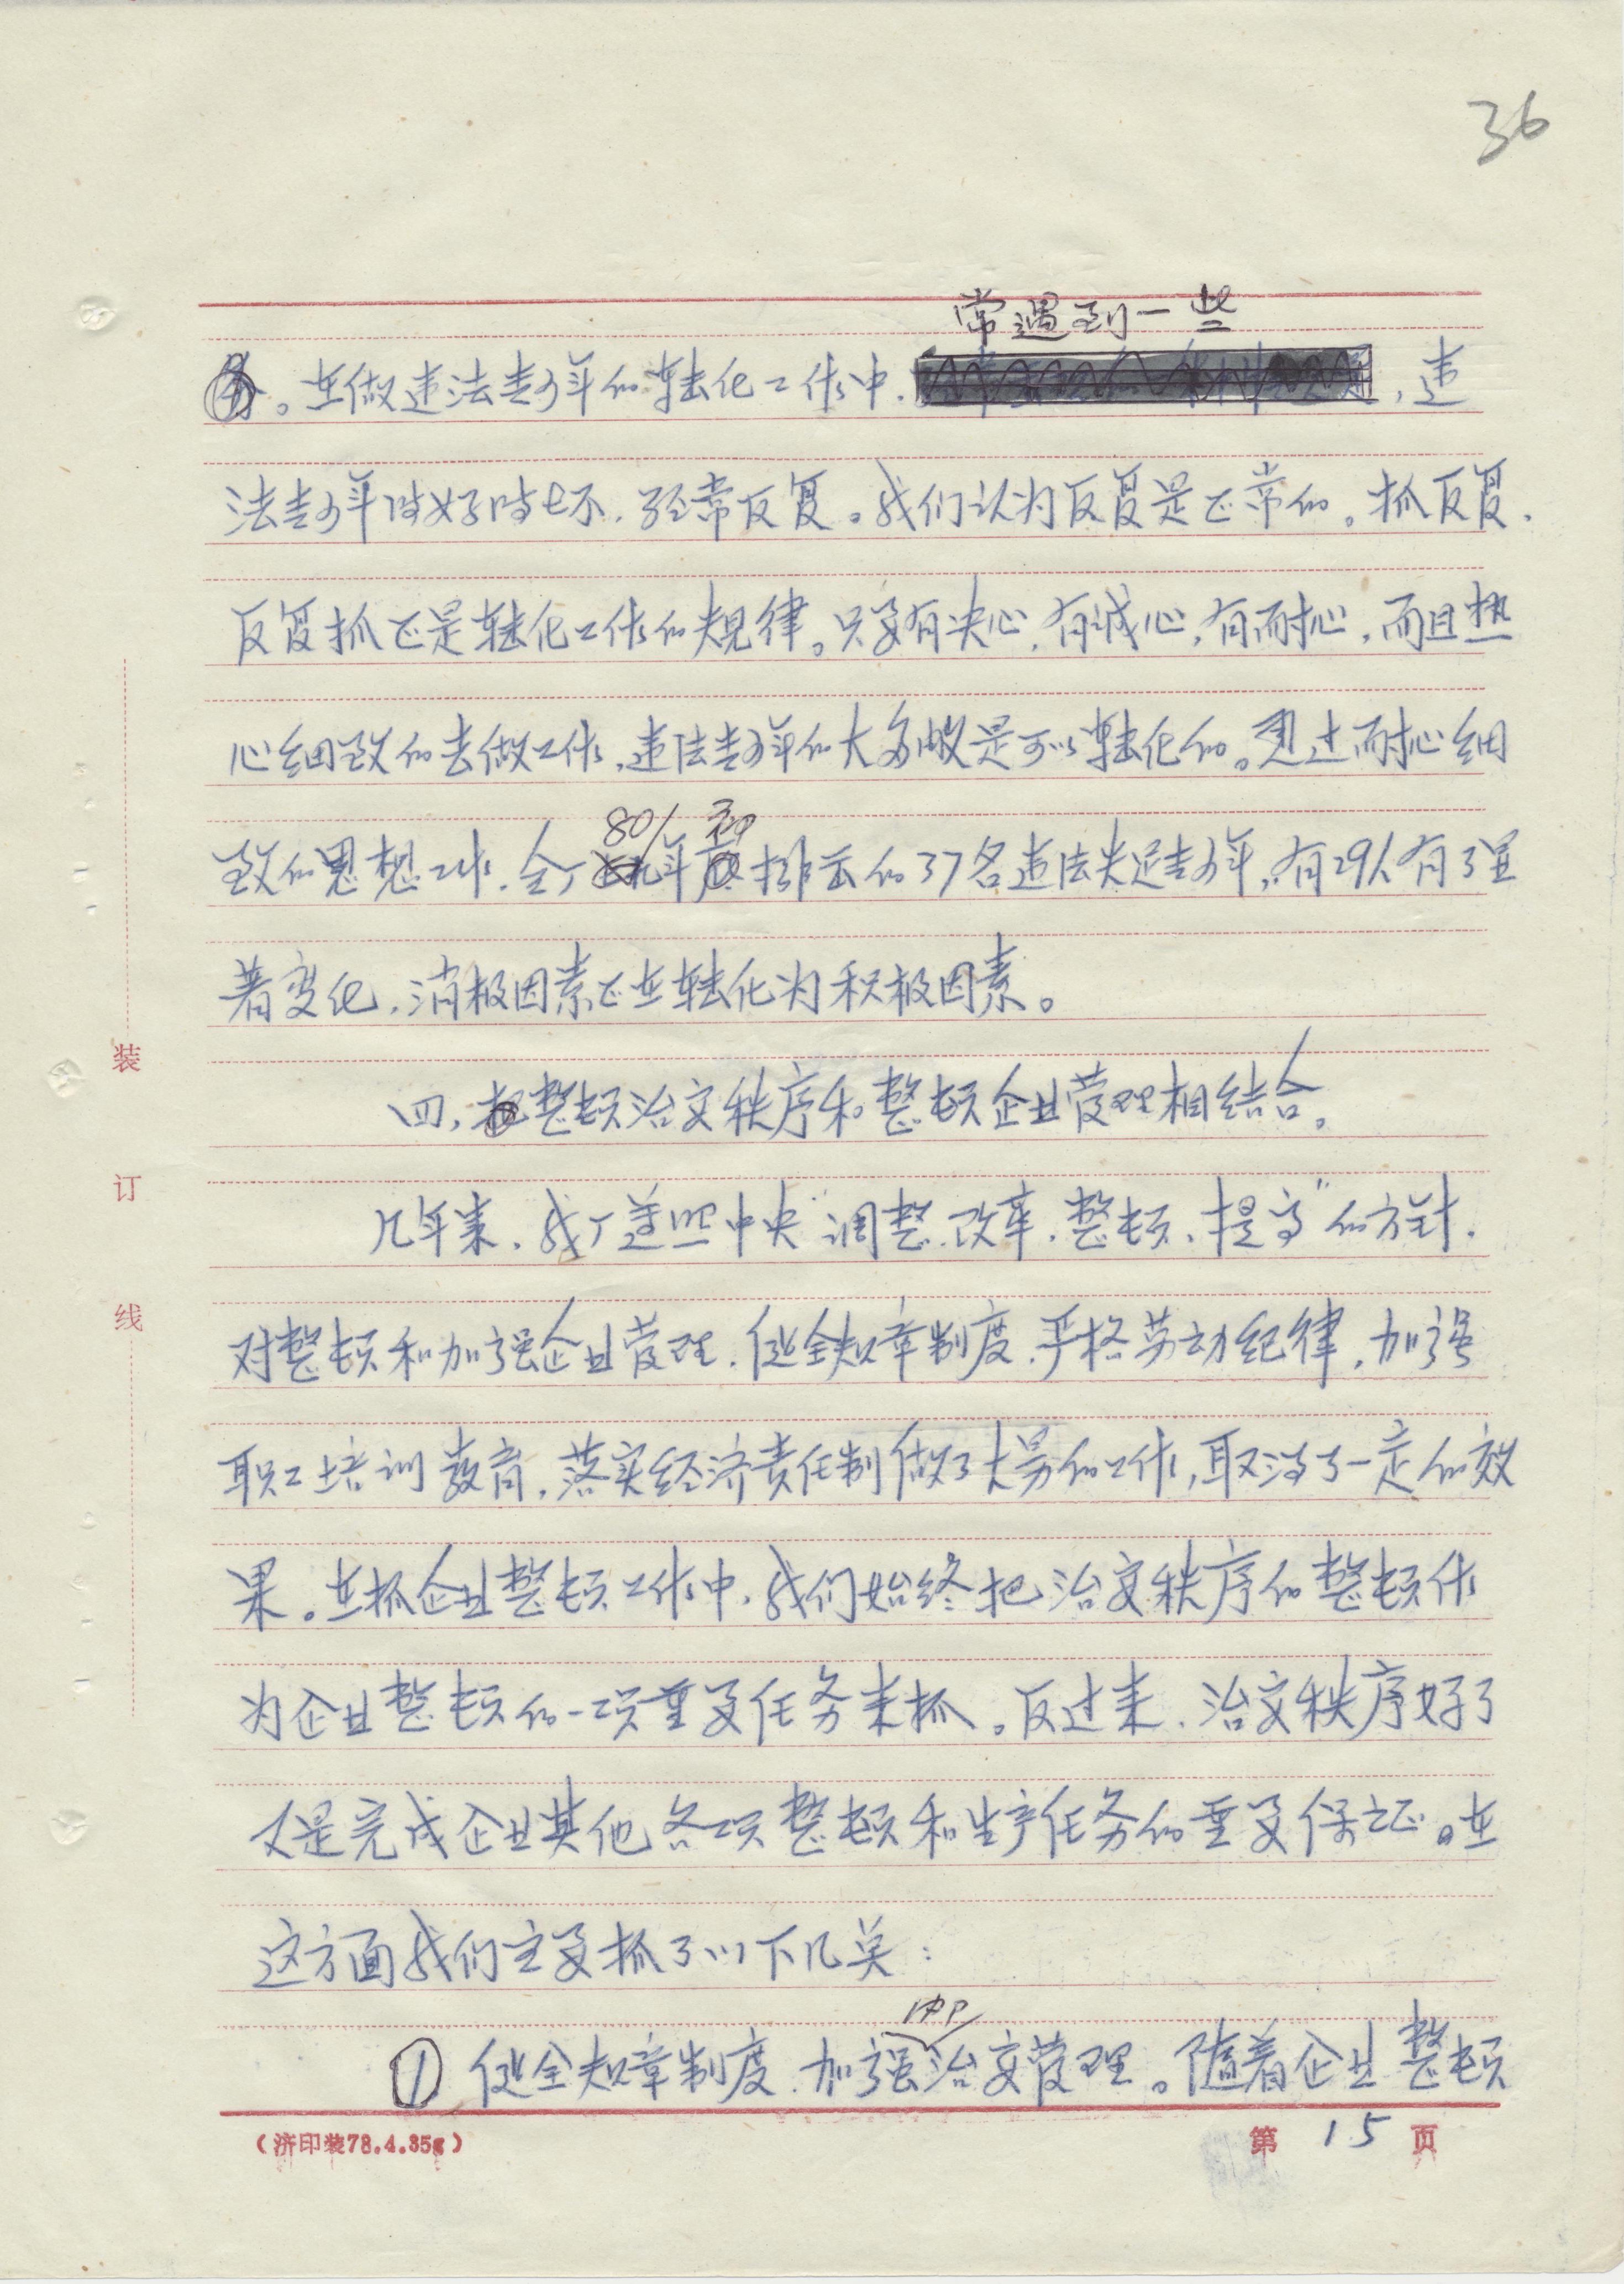 36
常遇到一些
务。在做违法青少年的转化工作中，，违
法青少年时好时坏，经常反复。我们认为反复是正常的。抓反复，
反复抓正是转化工作的规律。只要有决心，有诚心，有耐心，而且热
心细致的去做工作，违法青少年的大多数是可以转化的。通过耐心细
80 初
致的思想工作，全厂年排出的37名违法失足青少年，有29人有了显
著变化，消极因素正在转化为积极因素。
四，把整顿治安秩序和整顿企业管理相结合。
几年来，我厂遵照中央“调整、改革、整顿、提高”的方针，
对整顿和加强企业管理，健全规章制度，严格劳动纪律，加强
职工培训教育，落实经济责任制做了大量的工作，取得了一定的效
果。在抓企业整顿工作中，我们始终把治安秩序的整顿作
为企业整顿的一项重要任务来抓。反过来，治安秩序好了
又是完成企业其他各项整顿和生产任务的重要保证。在
这方面我们主要抓了以下几关：
内部
① 健全规章制度，加强治安管理。随着企业整顿
装
订
线
（济印装78.4.35g）
第 15 页